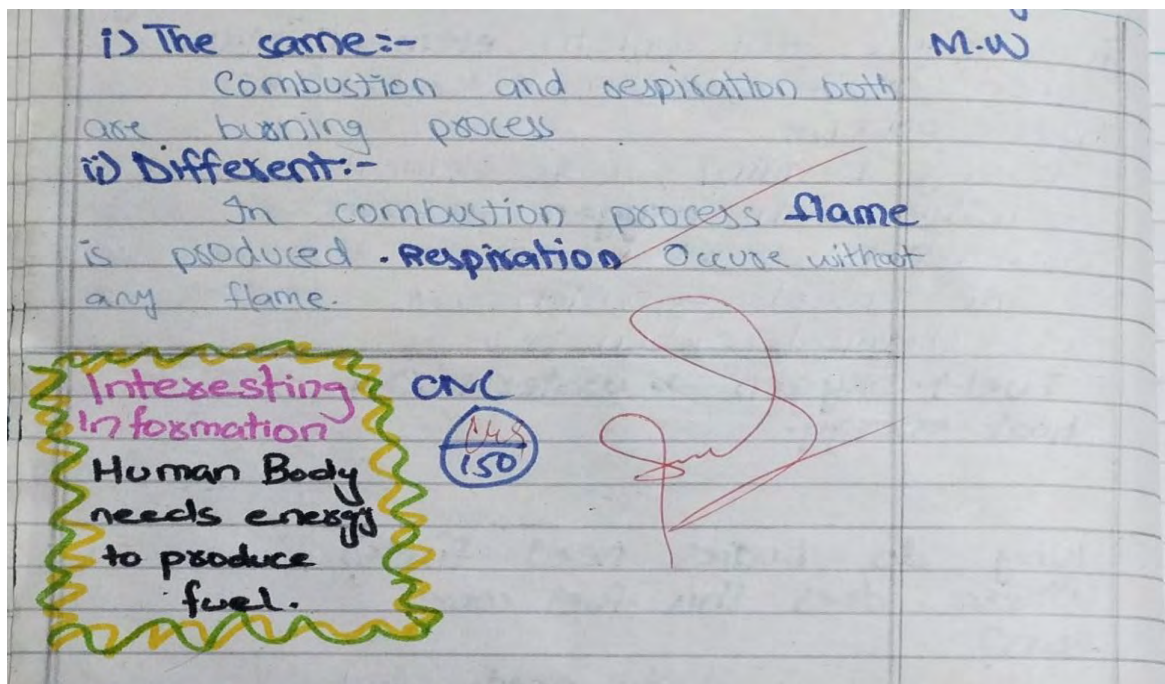 i) The same:-
M.W
Combustion and respiration both
are burning process
ii) Different:-
In combustion process flame
is produced. Respiration Occure without
any flame.
Interesting
Information
Human Body
needs energy
to produce
fuel.
CNC
150